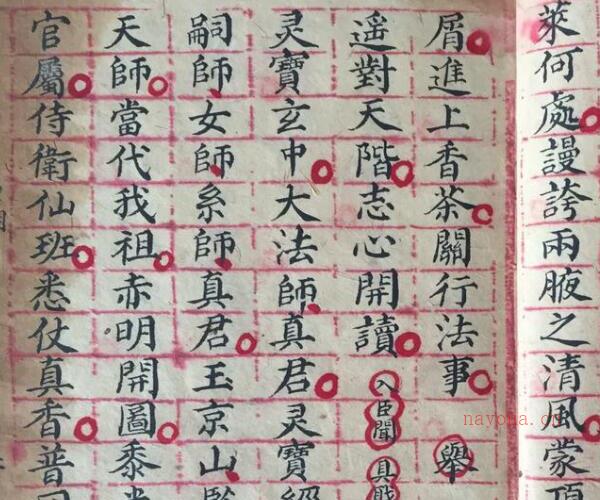 萊何處謾誇兩腋之清風蒙頂
屑進上香茶關行法事 舉
遥對天階志心開讀 入臣聞 具職
灵寶玄中大法師真君灵寶經
嗣師女師系師真君玉京山
天師當代我祖赤明開圖黍
官屬侍衛仙班悉仗真香普